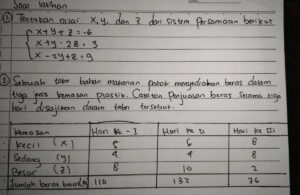 Soal latihan
① Tentukan nilai x, y, dan z dari sistem persamaan berikut
x+y+z=-6
x+y-2z=3
x-2y+z=9
② Sebuah toko bahan makanan pokok menyediakan beras dalam
tiga jenis kemasan plastik. Catatan penjualan beras selama tiga
hari disajikan dalam tabel tersebut.
Kemasan Hari ke-I Hari ke II Hari ke III
Kecil (x) 5 6 8
Sedang (y) 4 4 8
Besar (z) 8 10 2
Jumlah beras 110 132 76